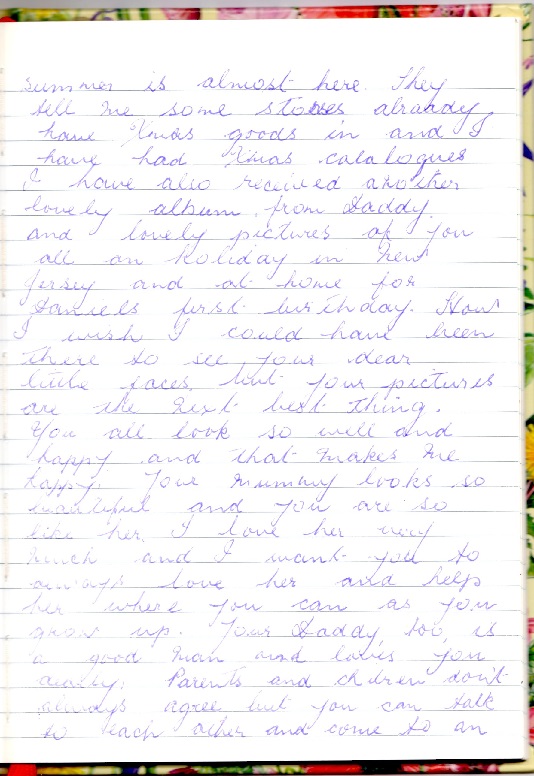 summer is almost here. They
tell me some stores alraady
have Xmas goods in and I
have had Xmas catalogues
I have also received another
lovely album from Daddy
and lovely pictures of you
all on holiday in New
Jersey and at home for
Daniels first birthday. How
I wish I could have been
there to see your dear
little faces, but your pictures
are the next best thing.
You all look so well and
happy and that makes me
happy. Your Mummy looks so
beautiful and you are so
like her. I love her very
much and I want you to
always love her and help
her where you can as you
grow up. Your Daddy, too, is
a good man and loves you
dearly. Parents and chdren don't
always agree but you can talk
to each other and come to an